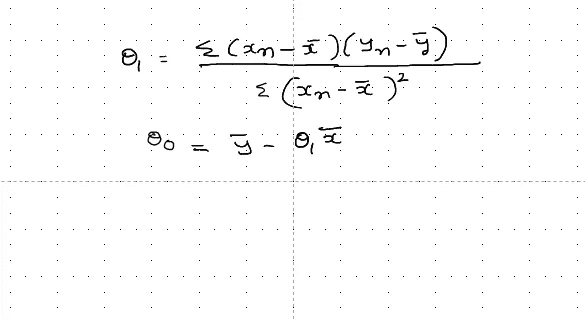 θ₁ = Σ(xₙ - x̄)(yₙ - ȳ) / Σ(xₙ - x̄)²
θ₀ = ȳ - θ₁x̄